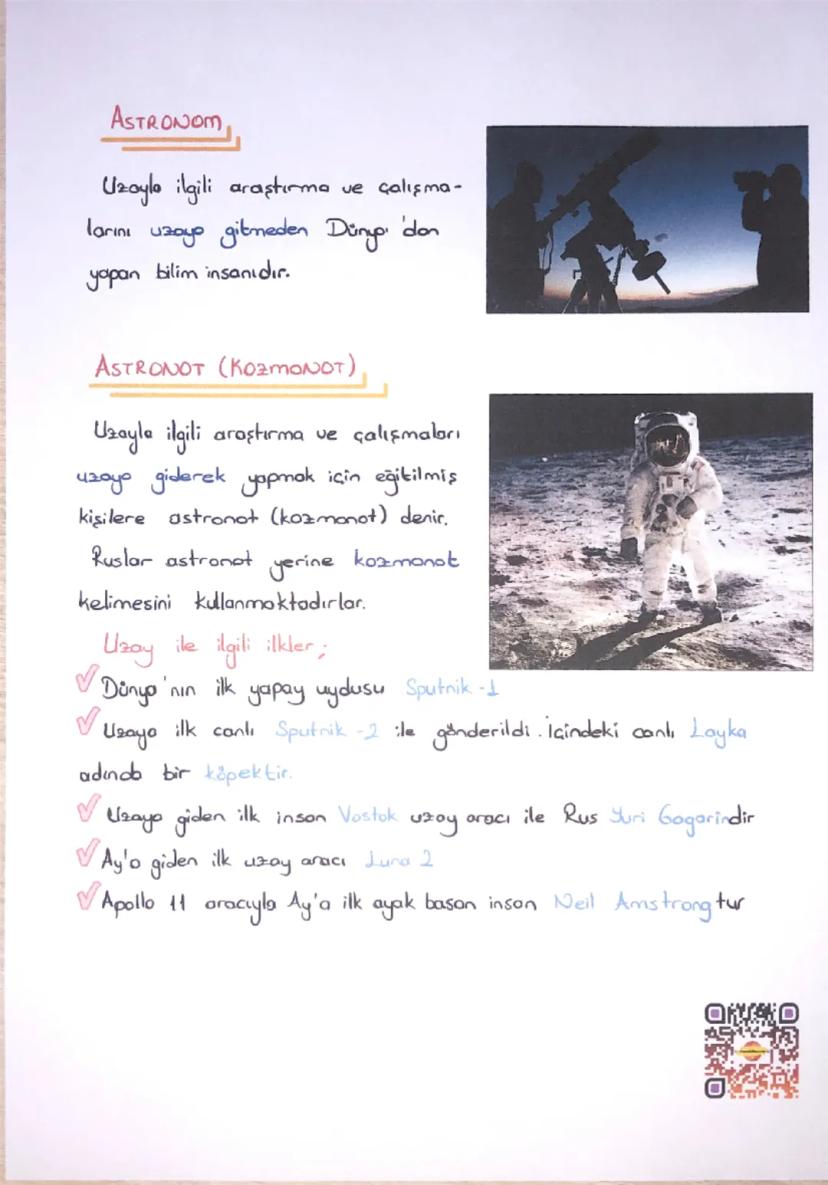 ASTRONOM
Uzayla ilgili araştırma ve çalışma-
larını uzaya gitmeden Dünya'dan
yapan bilim insanıdır.
ASTRONOT (KOZMONOT)
Uzayla ilgili araştırma ve çalışmaları
uzaya giderek yapmak için eğitilmiş
kişilere astronot (kozmonot) denir.
Ruslar astronot yerine kozmonot
kelimesini kullanmaktadırlar.
Uzay ile ilgili ilkler;
Dünya'nın ilk yapay uydusu Sputnik -1
Uzaya ilk canlı Sputnik -2 ile gönderildi. İçindeki canlı Layka
adında bir köpektir.
Uzaya giden ilk insan Vostok uzay aracı ile Rus Yuri Gagarindir
Ay'a giden ilk uzay aracı Luna 2
Apollo 11 aracıyla Ay'a ilk ayak basan insan Neil Amstrongtur